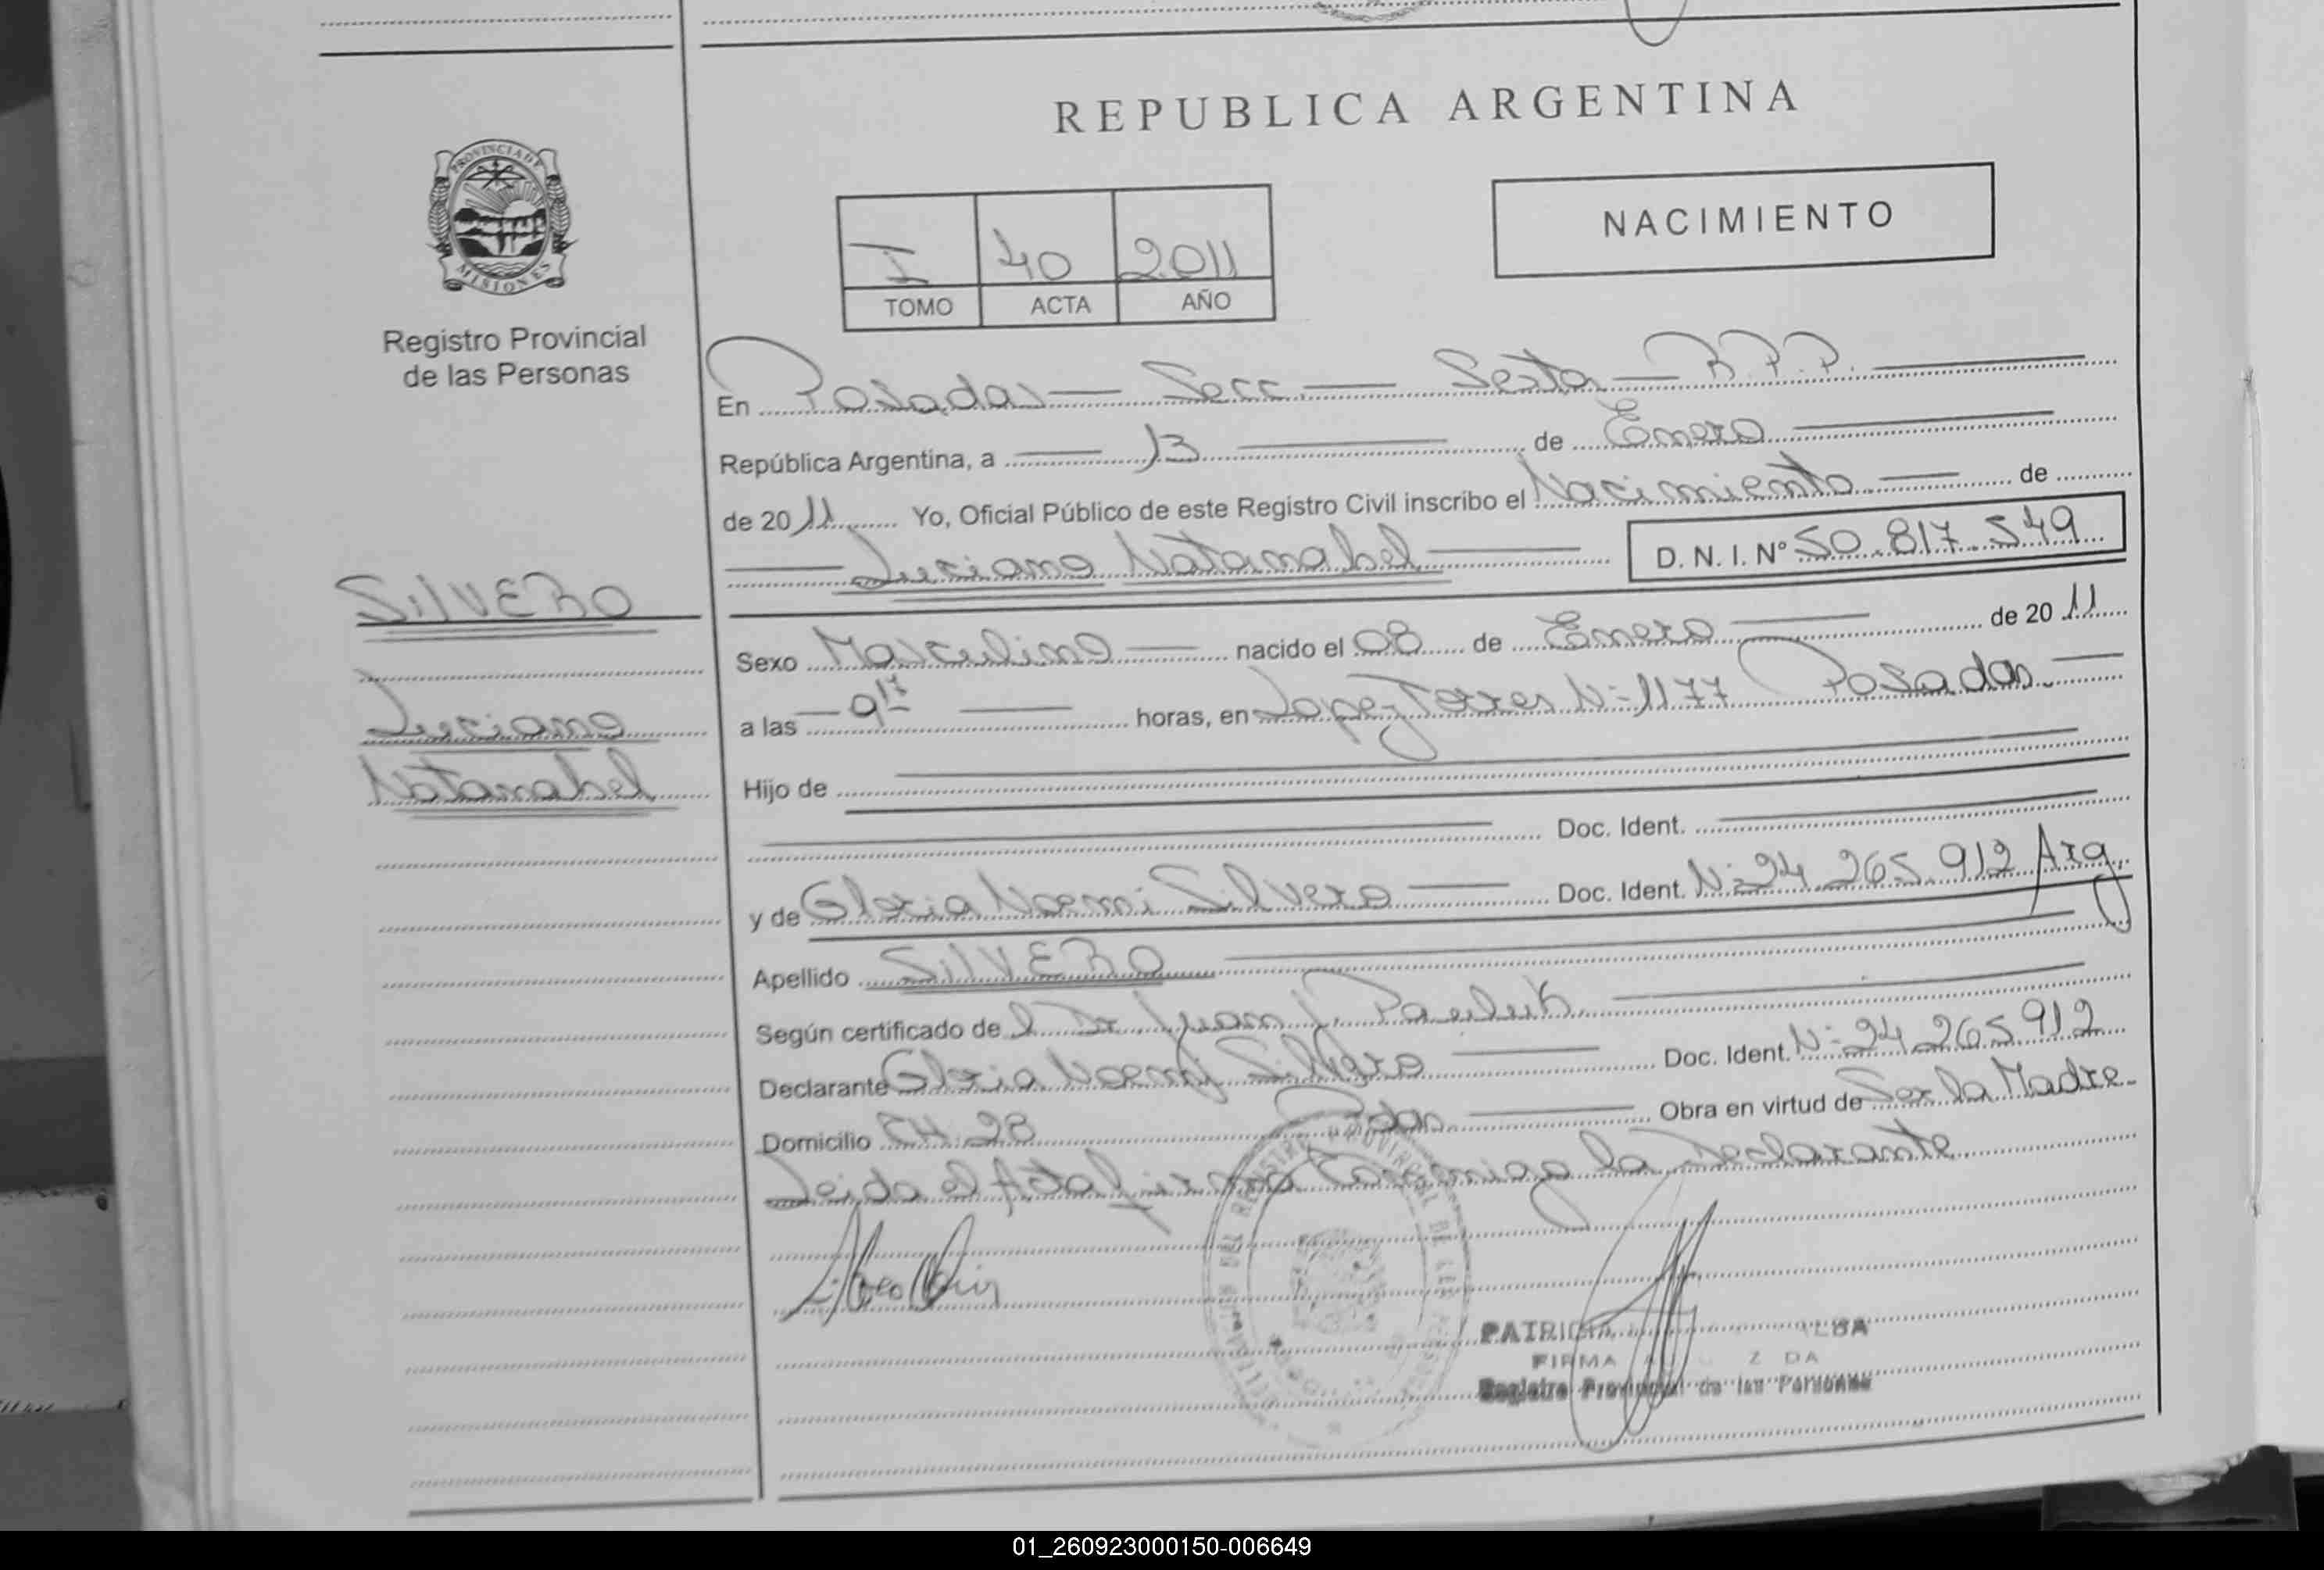 REPUBLICA ARGENTINA
PROVINCIA DE
MISIONES
Registro Provincial
de las Personas
I 40 2011
TOMO ACTA AÑO
NACIMIENTO
En Posadas — Secc. — Sexta — R.P.P.
República Argentina, a 13 de Enero
de 2011 Yo, Oficial Público de este Registro Civil inscribo el Nacimiento de
Luciano Natanahel D. N. I. Nº 50.817.549
SilVERO
Luciano
Natanahel
Sexo Masculino nacido el 08 de Enero de 2011
a las 9 17 horas, en Lopez Torres N: 1177 Posadas
Hijo de
Doc. Ident.
y de Gloria Noemi Silvero Doc. Ident. N: 24.265.912 Arg
Apellido SilVERO
Según certificado de l Dr. Juan J.
Declarante Gloria Noemi Silvero Doc. Ident. N: 24.265.912
Domicilio 28 Pdas. Obra en virtud de Ser la Madre
Leida el Acta firma Conmigo la Declarante
REGISTRO PROVINCIAL DE LAS
PATRICIA
FIRMA
Registro Provincial de las Personas
01_260923000150-006649